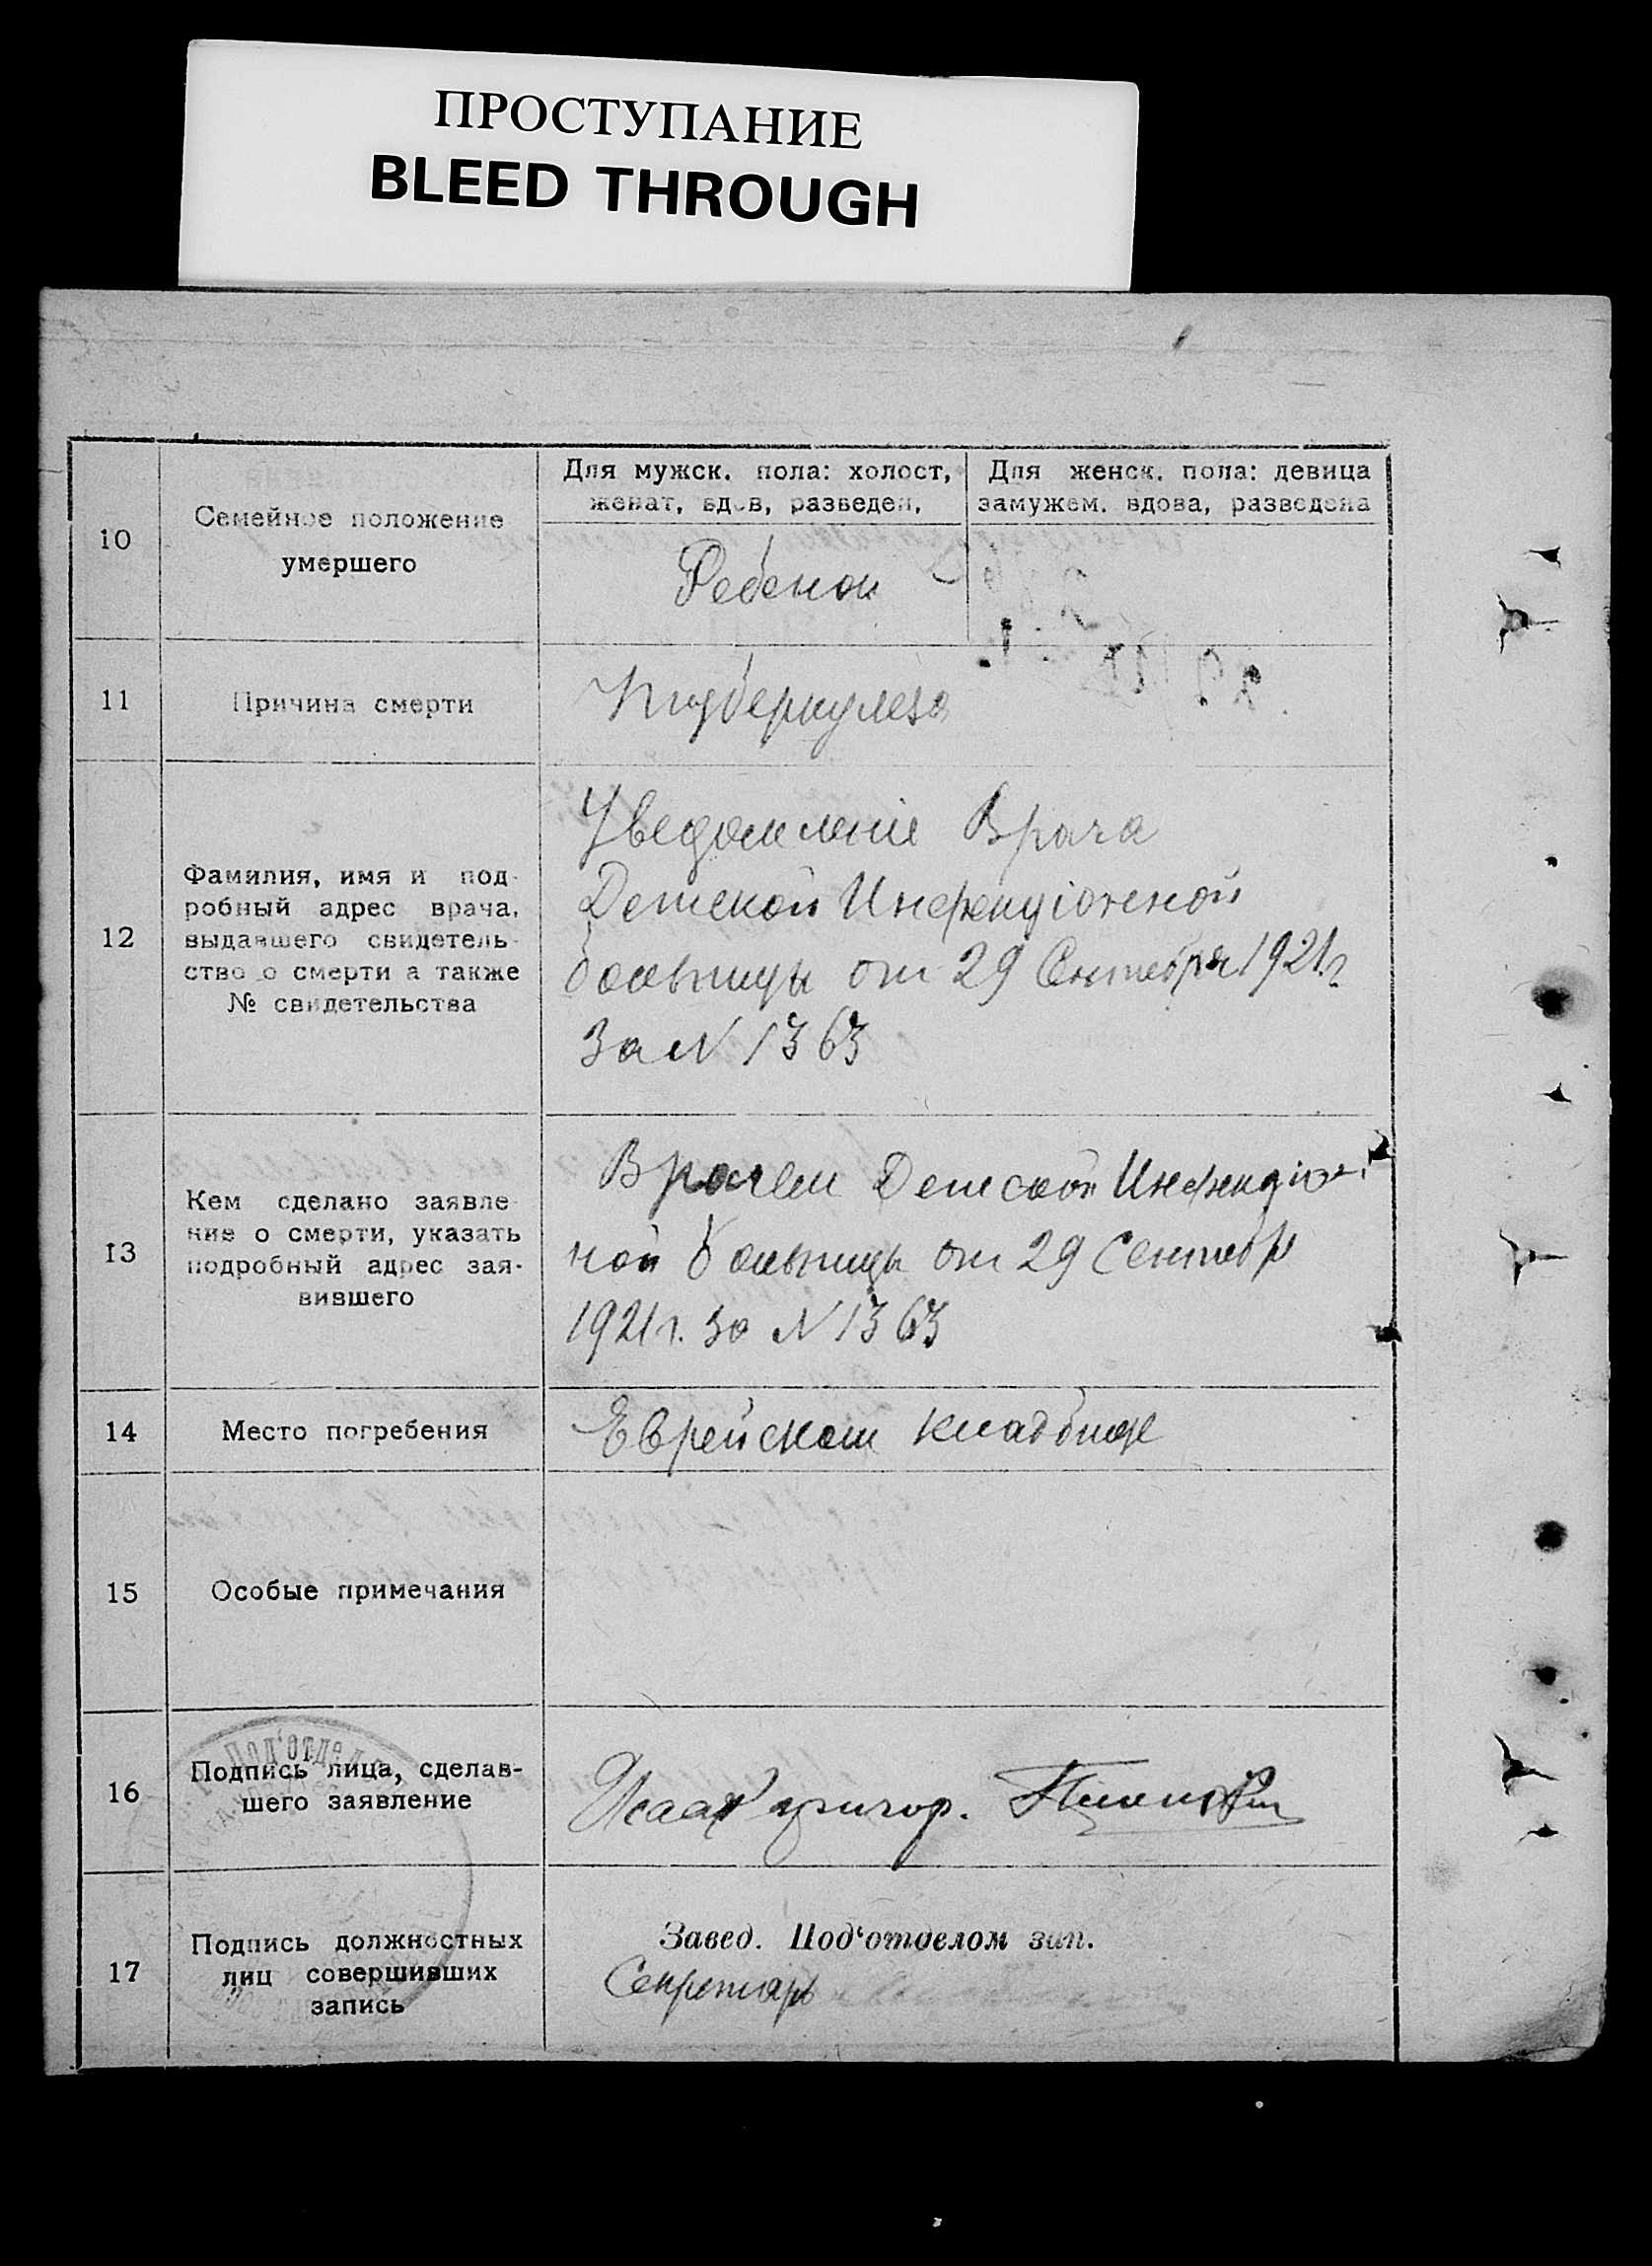 ПРОСТУПАНИЕ
BLEED THROUGH
10
Семейное положение
умершего
Для мужск. пола: холост,
женат, вдов, разведен.
Для женск. пола: девица
замужем. вдова, разведена
Ребенок
11
Причина смерти
Туберкулеза
12
Фамилия, имя и под-
робный адрес врача,
выдавшего свидетель-
ство о смерти а также
№ свидетельства
Уведомленіе Врача
Детской Инфекціонной
больницы от 29 Сентября 1921 г.
За N 1363
13
Кем сделано заявле-
ние о смерти, указать
подробный адрес зая-
вившего
Врачем Детской Инфекціон-
ной больницы от 29 Сентябр
1921 г. за N 1363
14
Место погребения
Еврейском кладбище
15
Особые примечания
16
Подпись лица, сделав-
шего заявление
Исаак Григор.
17
Подпись должностных
лиц совершивших
запись
Завед. Под'отделом зап.
Секретарь
Под'отдел